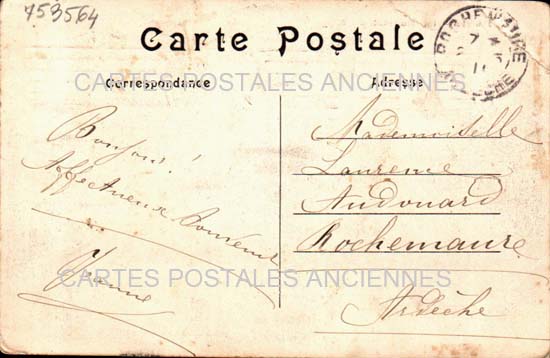 753564
Carte Postale
CARTES POSTALES ANCIENNES
Correspondance
Adresse
ROCHEMAURE
Bonjour!
Affectueux
Jeanne
Mademoiselle
Laurence
Audouard
Rochemaure
Ardèche
CARTES POSTALES ANCIENNES